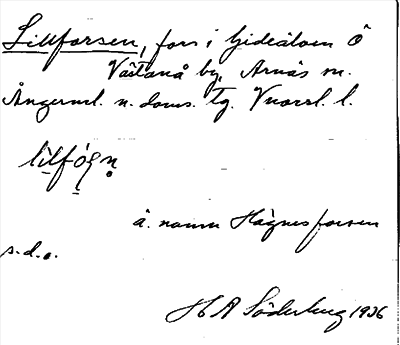 Lillforsen, fors i Gideälven Ö
Västanå by, Arnäs sn.
Ångerml. n. doms. tg. Vnorrl. l.
lìlfósn̥
å. namn Hägnesforsen
s.d.o.
H A Söderberg 1936